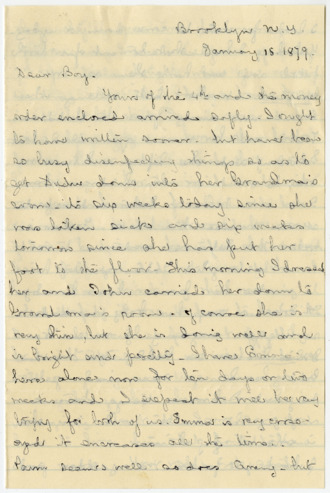 Brooklyn N.Y
January 15 1879.
Dear Boy.
Yours of the 4th and the money
order enclosed arrived safely. I ought
to have written sooner. but have been
so busy disenfecting things so as to
get down into her Grandma's
room. It six weeks today since she
was taken sick and six weeks
tomorrow since she has put her
foot to the floor. This morning I dressed
her and John carried her down to
Grandma's room. Of course she is
very thin, but she is doing well and
is bright and pretty. I have Emma
here alone now for ten days or two
weeks and I expect it will be very
for both of us. Emma is very cross
and it increases all the time.
seems well so does but